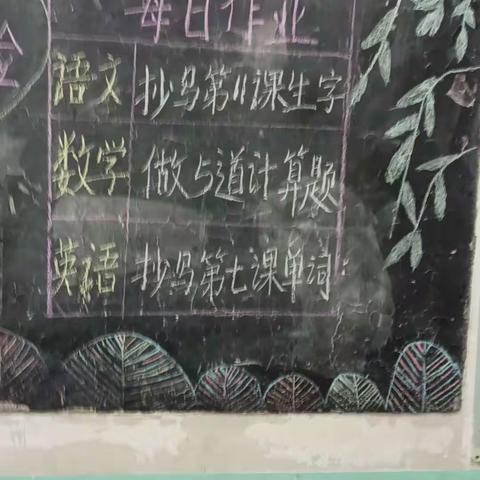 每日作业
語文 抄写第11课生字
数学 做5道计算题
英語 抄写第七课单词: